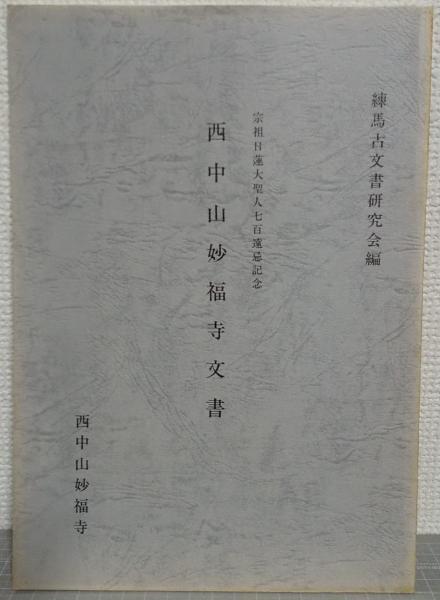 練馬古文書研究会編
宗祖日蓮大聖人七百遠忌記念
西中山妙福寺文書
西中山妙福寺